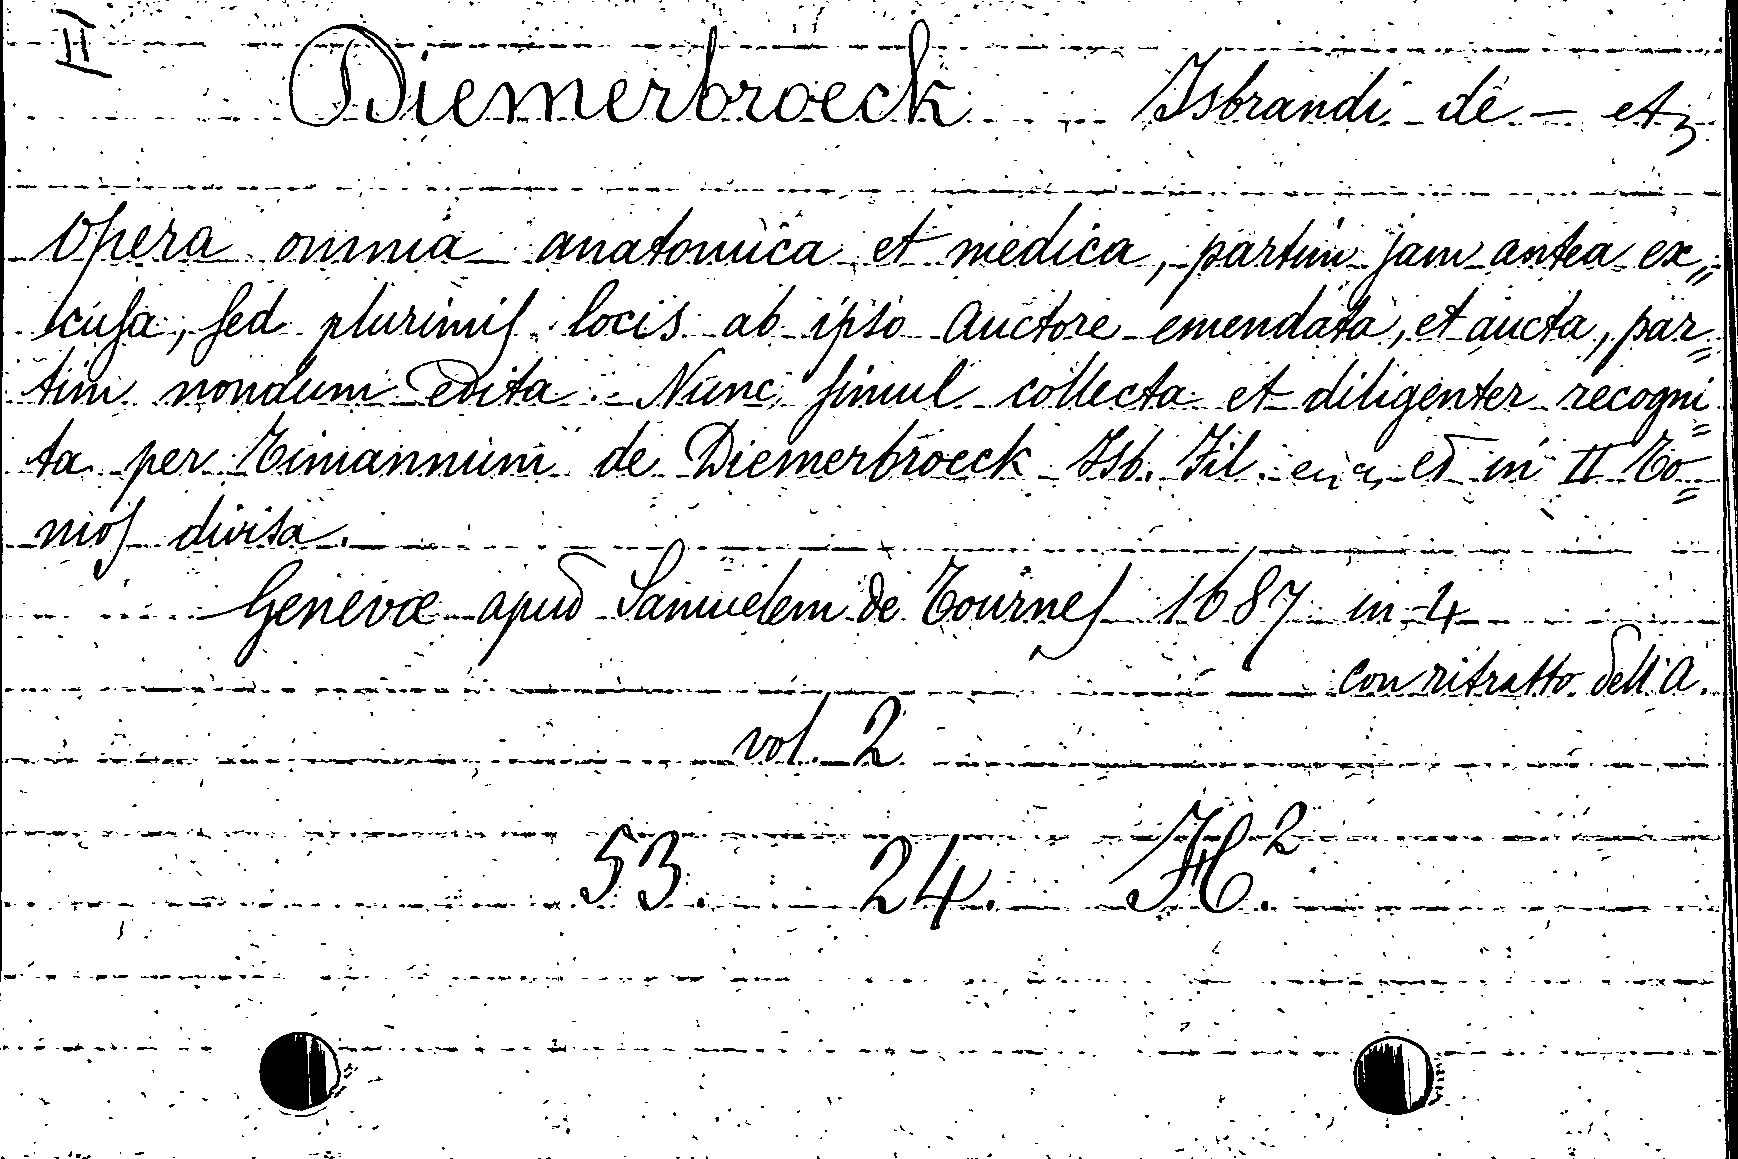 II
Diemerbroeck Isbrandi de — etz
Opera omnia anatomica et medica, partim jam antea ex„
cuſa, ſed plurimiſ locis ab ipso Auctore emendata, et aucta, par=
tim nondum edita. Nunc ſimul collecta et diligenter recogni=
ta per Timannum de Diemerbroeck Isb. Fil. et in II To=
moſ divisa.
Genevæ apud Samuelem de Tourneſ 1687 in 4
con ritratto dell'A.
vol. 2
53. 24. H.2